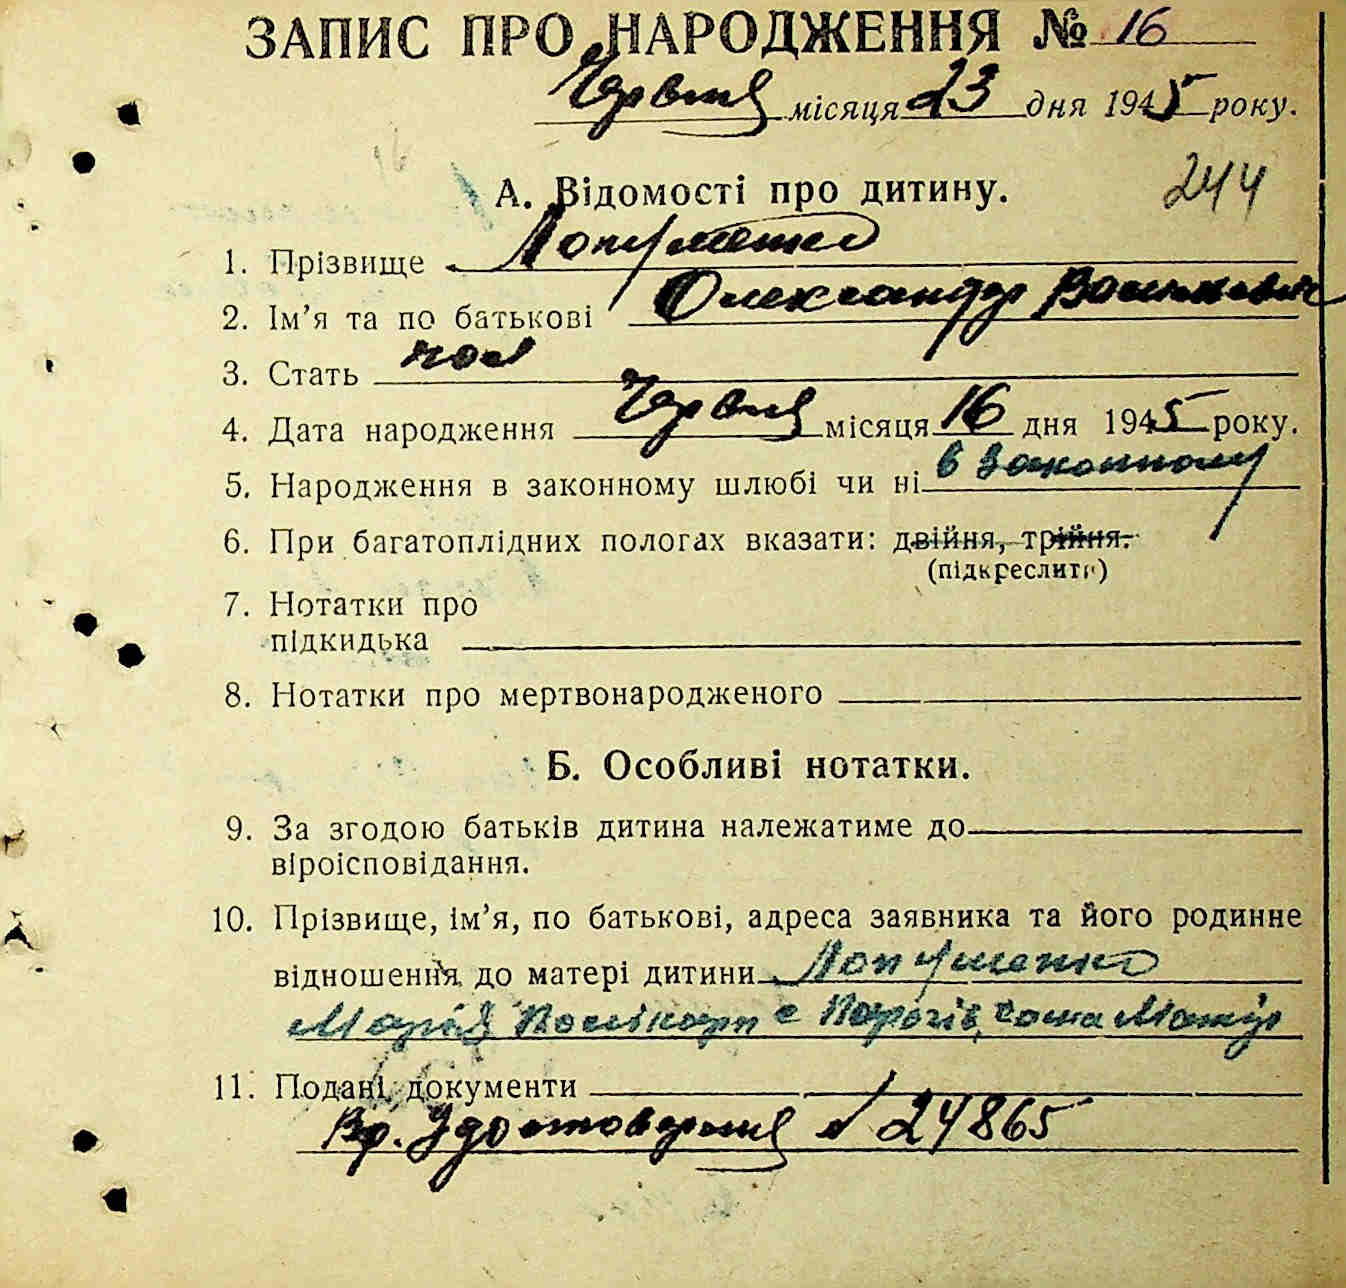 ЗАПИС ПРО НАРОДЖЕННЯ № 16
Червня місяця 23 дня 1945 року.
244
А. Відомості про дитину.
1. Прізвище Лопушенко
2. Ім’я та по батькові Олександр Васильевич
3. Стать чол
4. Дата народження Червня місяця 16 дня 1945 року.
5. Народження в законному шлюбі чи ні в законному
6. При багатоплідних пологах вказати: двійня, трійня.
(підкреслити)
7. Нотатки про
підкидька
8. Нотатки про мертвонародженого
Б. Особливі нотатки.
9. За згодою батьків дитина належатиме до
віроісповідання.
10. Прізвище, ім’я, по батькові, адреса заявника та його родинне
відношення до матері дитини Лопушенко
Марія Полікарп с Порогів, сама Матір
11. Подані документи
Вр. Удостоверения № 24865